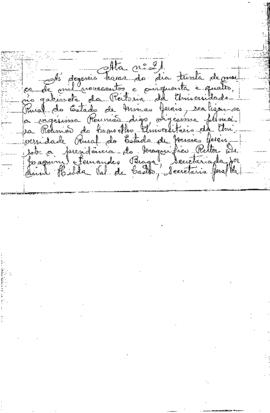 Ata nº 21
As dezenove horas do dia trinta de
ço de mil novecentos e cinquenta e quatro,
no gabinete da Reitoria da Universidade
Rural do Estado de Minas Gerais, realizou-se
a vigésima Reunião, digo vigésima primei-
ra Reunião do Conselho Universitário da Uni-
versidade Rural do Estado de Minas Gerais,
sob a presidência do Magnífico Reitor Dr.
Joaquim Fernandes Braga, secretariada por
mim Hilda de Castro, Secretária